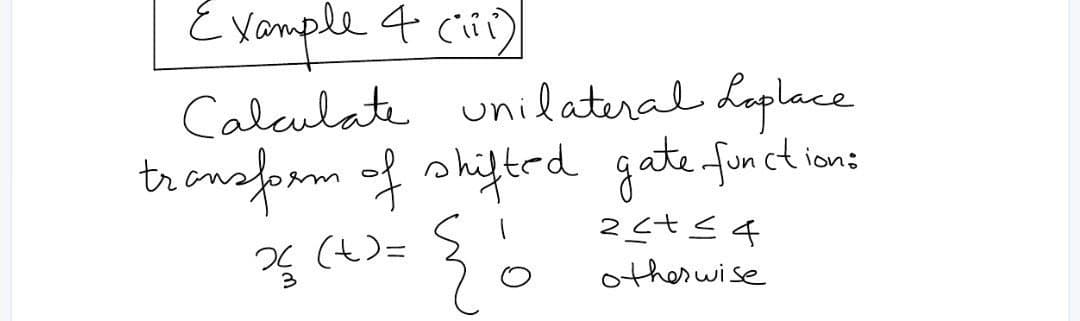 Example 4 (iii)
Calculate unilateral Laplace
transform of shifted gate function:
x₃(t) = { 1 2 ≤ t ≤ 4
0 otherwise